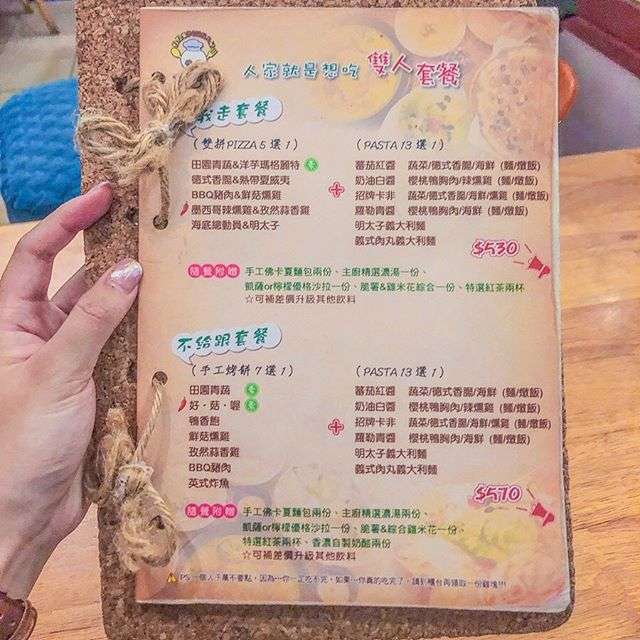 人家就是想吃 雙人套餐
我走套餐
(雙拼PIZZA 5 選 1)
田園青蔬&洋芋瑪格麗特
德式香腸&熱帶夏威夷
BBQ豬肉&鮮菇燻雞
墨西哥辣燻雞&孜然蒜香雞
海底總動員&明太子
+
(PASTA 13 選 1)
蕃茄紅醬 蔬菜/德式香腸/海鮮 (麵/燉飯)
奶油白醬 櫻桃鴨胸肉/辣燻雞 (麵/燉飯)
招牌卡非 蔬菜/德式香腸/海鮮/燻雞 (麵/燉飯)
羅勒青醬 櫻桃鴨胸肉/海鮮 (麵/燉飯)
明太子義大利麵
義式肉丸義大利麵
$530
隨餐附贈 手工佛卡夏麵包兩份、主廚精選濃湯一份、
凱薩or檸檬優格沙拉一份、脆薯&雞米花綜合一份、特選紅茶兩杯
☆可補差價升級其他飲料
不給跟套餐
(手工烤餅 7 選 1)
田園青蔬
好·菇·喔
鴨香飽
鮮菇燻雞
孜然蒜香雞
BBQ豬肉
英式炸魚
+
(PASTA 13 選 1)
蕃茄紅醬 蔬菜/德式香腸/海鮮 (麵/燉飯)
奶油白醬 櫻桃鴨胸肉/辣燻雞 (麵/燉飯)
招牌卡非 蔬菜/德式香腸/海鮮/燻雞 (麵/燉飯)
羅勒青醬 櫻桃鴨胸肉/海鮮 (麵/燉飯)
明太子義大利麵
義式肉丸義大利麵
$570
隨餐附贈 手工佛卡夏麵包兩份、主廚精選濃湯兩份、
凱薩or檸檬優格沙拉一份、脆薯&綜合雞米花一份、
特選紅茶兩杯、香濃自製奶酪兩份
☆可補差價升級其他飲料
PS 一個人千萬不要點，因為…你一定吃不完，如果…你真的吃完了，請到櫃台再領取一份雞塊!!!